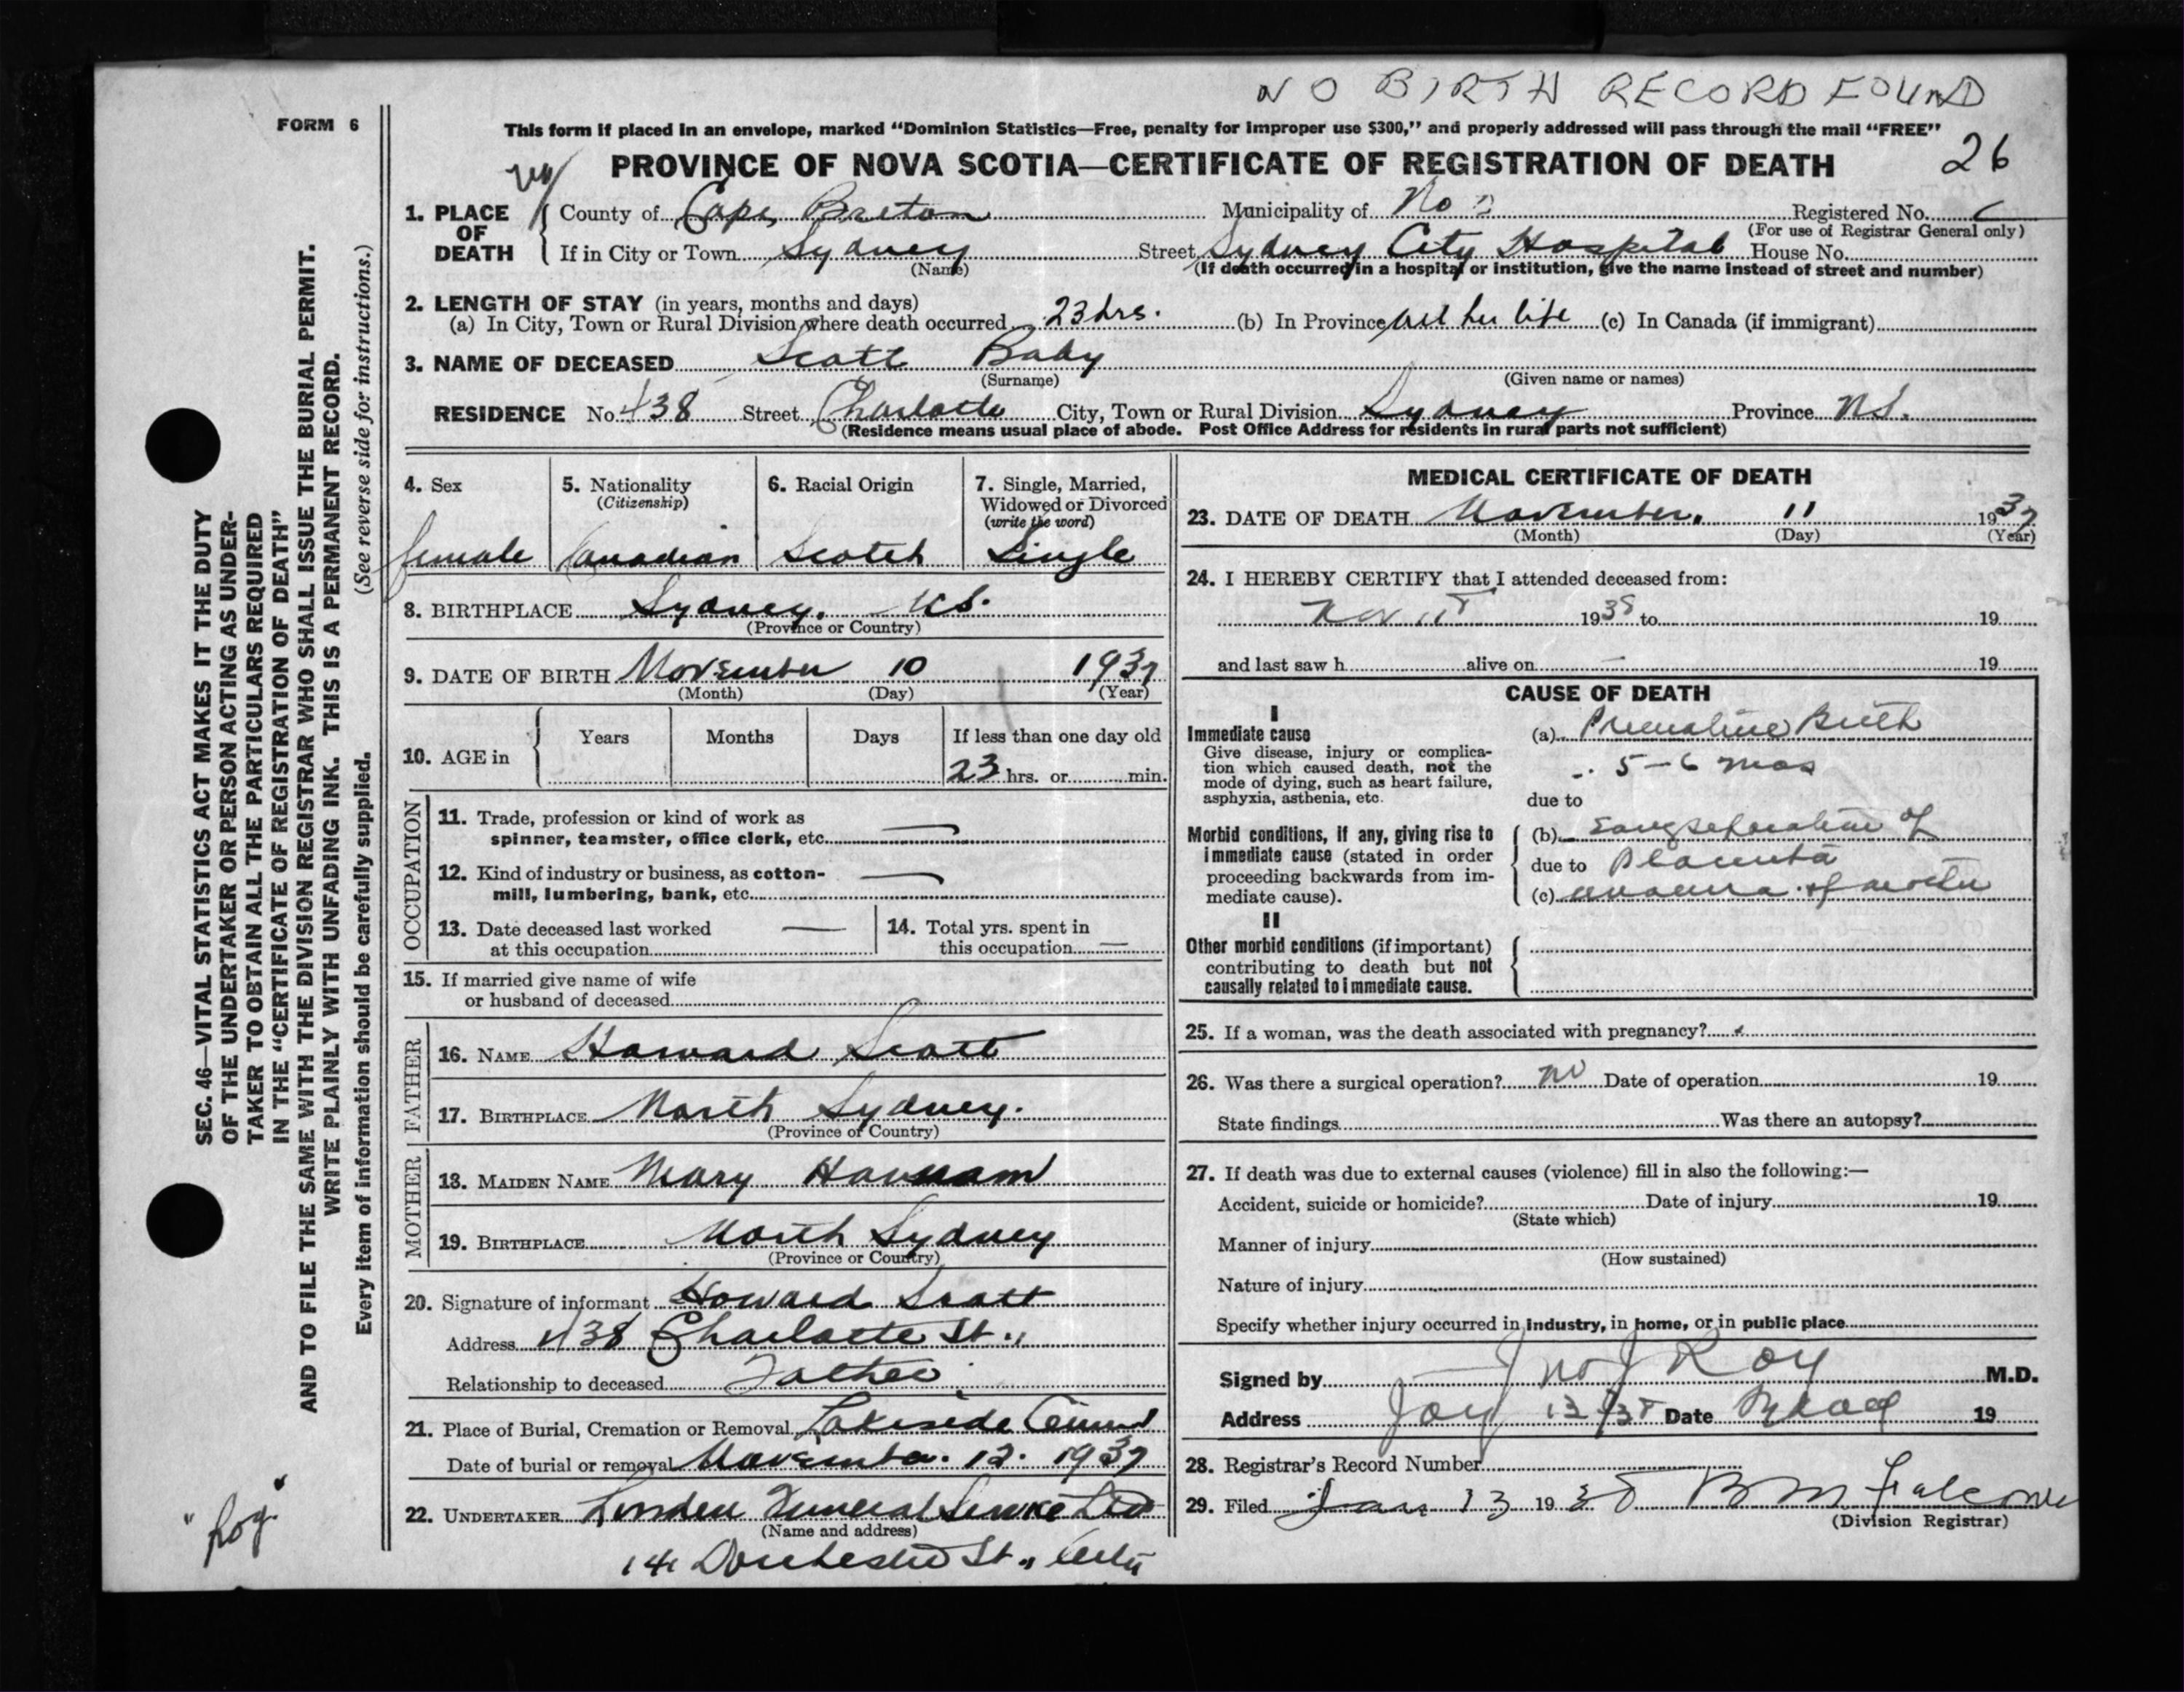 NO BIRTH RECORD FOUND
FORM 6
This form if placed in an envelope, marked "Dominion Statistics—Free, penalty for improper use $300," and properly addressed will pass through the mail "FREE"
PROVINCE OF NOVA SCOTIA—CERTIFICATE OF REGISTRATION OF DEATH
26
1. PLACE OF DEATH
County of Cape Breton Municipality of No Registered No.
(For use of Registrar General only)
If in City or Town Sydney Street Sydney City Hospital House No.
(Name)
(If death occurred in a hospital or institution, give the name instead of street and number)
2. LENGTH OF STAY (in years, months and days)
(a) In City, Town or Rural Division where death occurred 23 hrs. (b) In Province All her life (c) In Canada (if immigrant)
3. NAME OF DECEASED Scott Baby
(Surname) (Given name or names)
RESIDENCE No. 438 Street Charlotte City, Town or Rural Division Sydney Province N.S.
(Residence means usual place of abode. Post Office Address for residents in rural parts not sufficient)
4. Sex
female
5. Nationality
(Citizenship)
Canadian
6. Racial Origin
Scotch
7. Single, Married,
Widowed or Divorced
(write the word)
Single
8. BIRTHPLACE Sydney, N.S.
(Province or Country)
9. DATE OF BIRTH November 10 1937
(Month) (Day) (Year)
10. AGE in
Years Months Days If less than one day old
23 hrs. or min.
OCCUPATION
11. Trade, profession or kind of work as
spinner, teamster, office clerk, etc. —
12. Kind of industry or business, as cotton-
mill, lumbering, bank, etc. —
13. Date deceased last worked
at this occupation —
14. Total yrs. spent in
this occupation —
15. If married give name of wife
or husband of deceased
FATHER
16. NAME Howard Scott
17. BIRTHPLACE North Sydney.
(Province or Country)
MOTHER
18. MAIDEN NAME Mary
19. BIRTHPLACE North Sydney
(Province or Country)
20. Signature of informant Howard Scott
Address 438 Charlotte St.,
Relationship to deceased Father
21. Place of Burial, Cremation or Removal Lakeside
Date of burial or removal November. 12. 1937
22. UNDERTAKER Funeral Service Ltd
(Name and address)
141 Dorchester St., City
MEDICAL CERTIFICATE OF DEATH
23. DATE OF DEATH November. 11 1937
(Month) (Day) (Year)
24. I HEREBY CERTIFY that I attended deceased from:
Nov 1938 to 19
and last saw h alive on — 19
CAUSE OF DEATH
I
Immediate cause
Give disease, injury or complica-
tion which caused death, not the
mode of dying, such as heart failure,
asphyxia, asthenia, etc.
(a) Premature Birth
5-6 mos
due to
Morbid conditions, if any, giving rise to
immediate cause (stated in order
proceeding backwards from im-
mediate cause).
(b) separation of
due to Placenta
(c) of mother
II
Other morbid conditions (if important)
contributing to death but not
causally related to immediate cause.
25. If a woman, was the death associated with pregnancy?
26. Was there a surgical operation? no Date of operation 19
State findings Was there an autopsy?
27. If death was due to external causes (violence) fill in also the following:—
Accident, suicide or homicide? Date of injury 19
(State which)
Manner of injury
(How sustained)
Nature of injury
Specify whether injury occurred in industry, in home, or in public place
Signed by Jno J Roy M.D.
Address 13/38 Date 19
28. Registrar's Record Number
29. Filed Jan 13 1938 B M
(Division Registrar)
SEC. 46—VITAL STATISTICS ACT MAKES IT THE DUTY
OF THE UNDERTAKER OR PERSON ACTING AS UNDER-
TAKER TO OBTAIN ALL THE PARTICULARS REQUIRED
IN THE "CERTIFICATE OF REGISTRATION OF DEATH"
AND TO FILE THE SAME WITH THE DIVISION REGISTRAR WHO SHALL ISSUE THE BURIAL PERMIT.
WRITE PLAINLY WITH UNFADING INK. THIS IS A PERMANENT RECORD.
Every item of information should be carefully supplied. (See reverse side for instructions.)